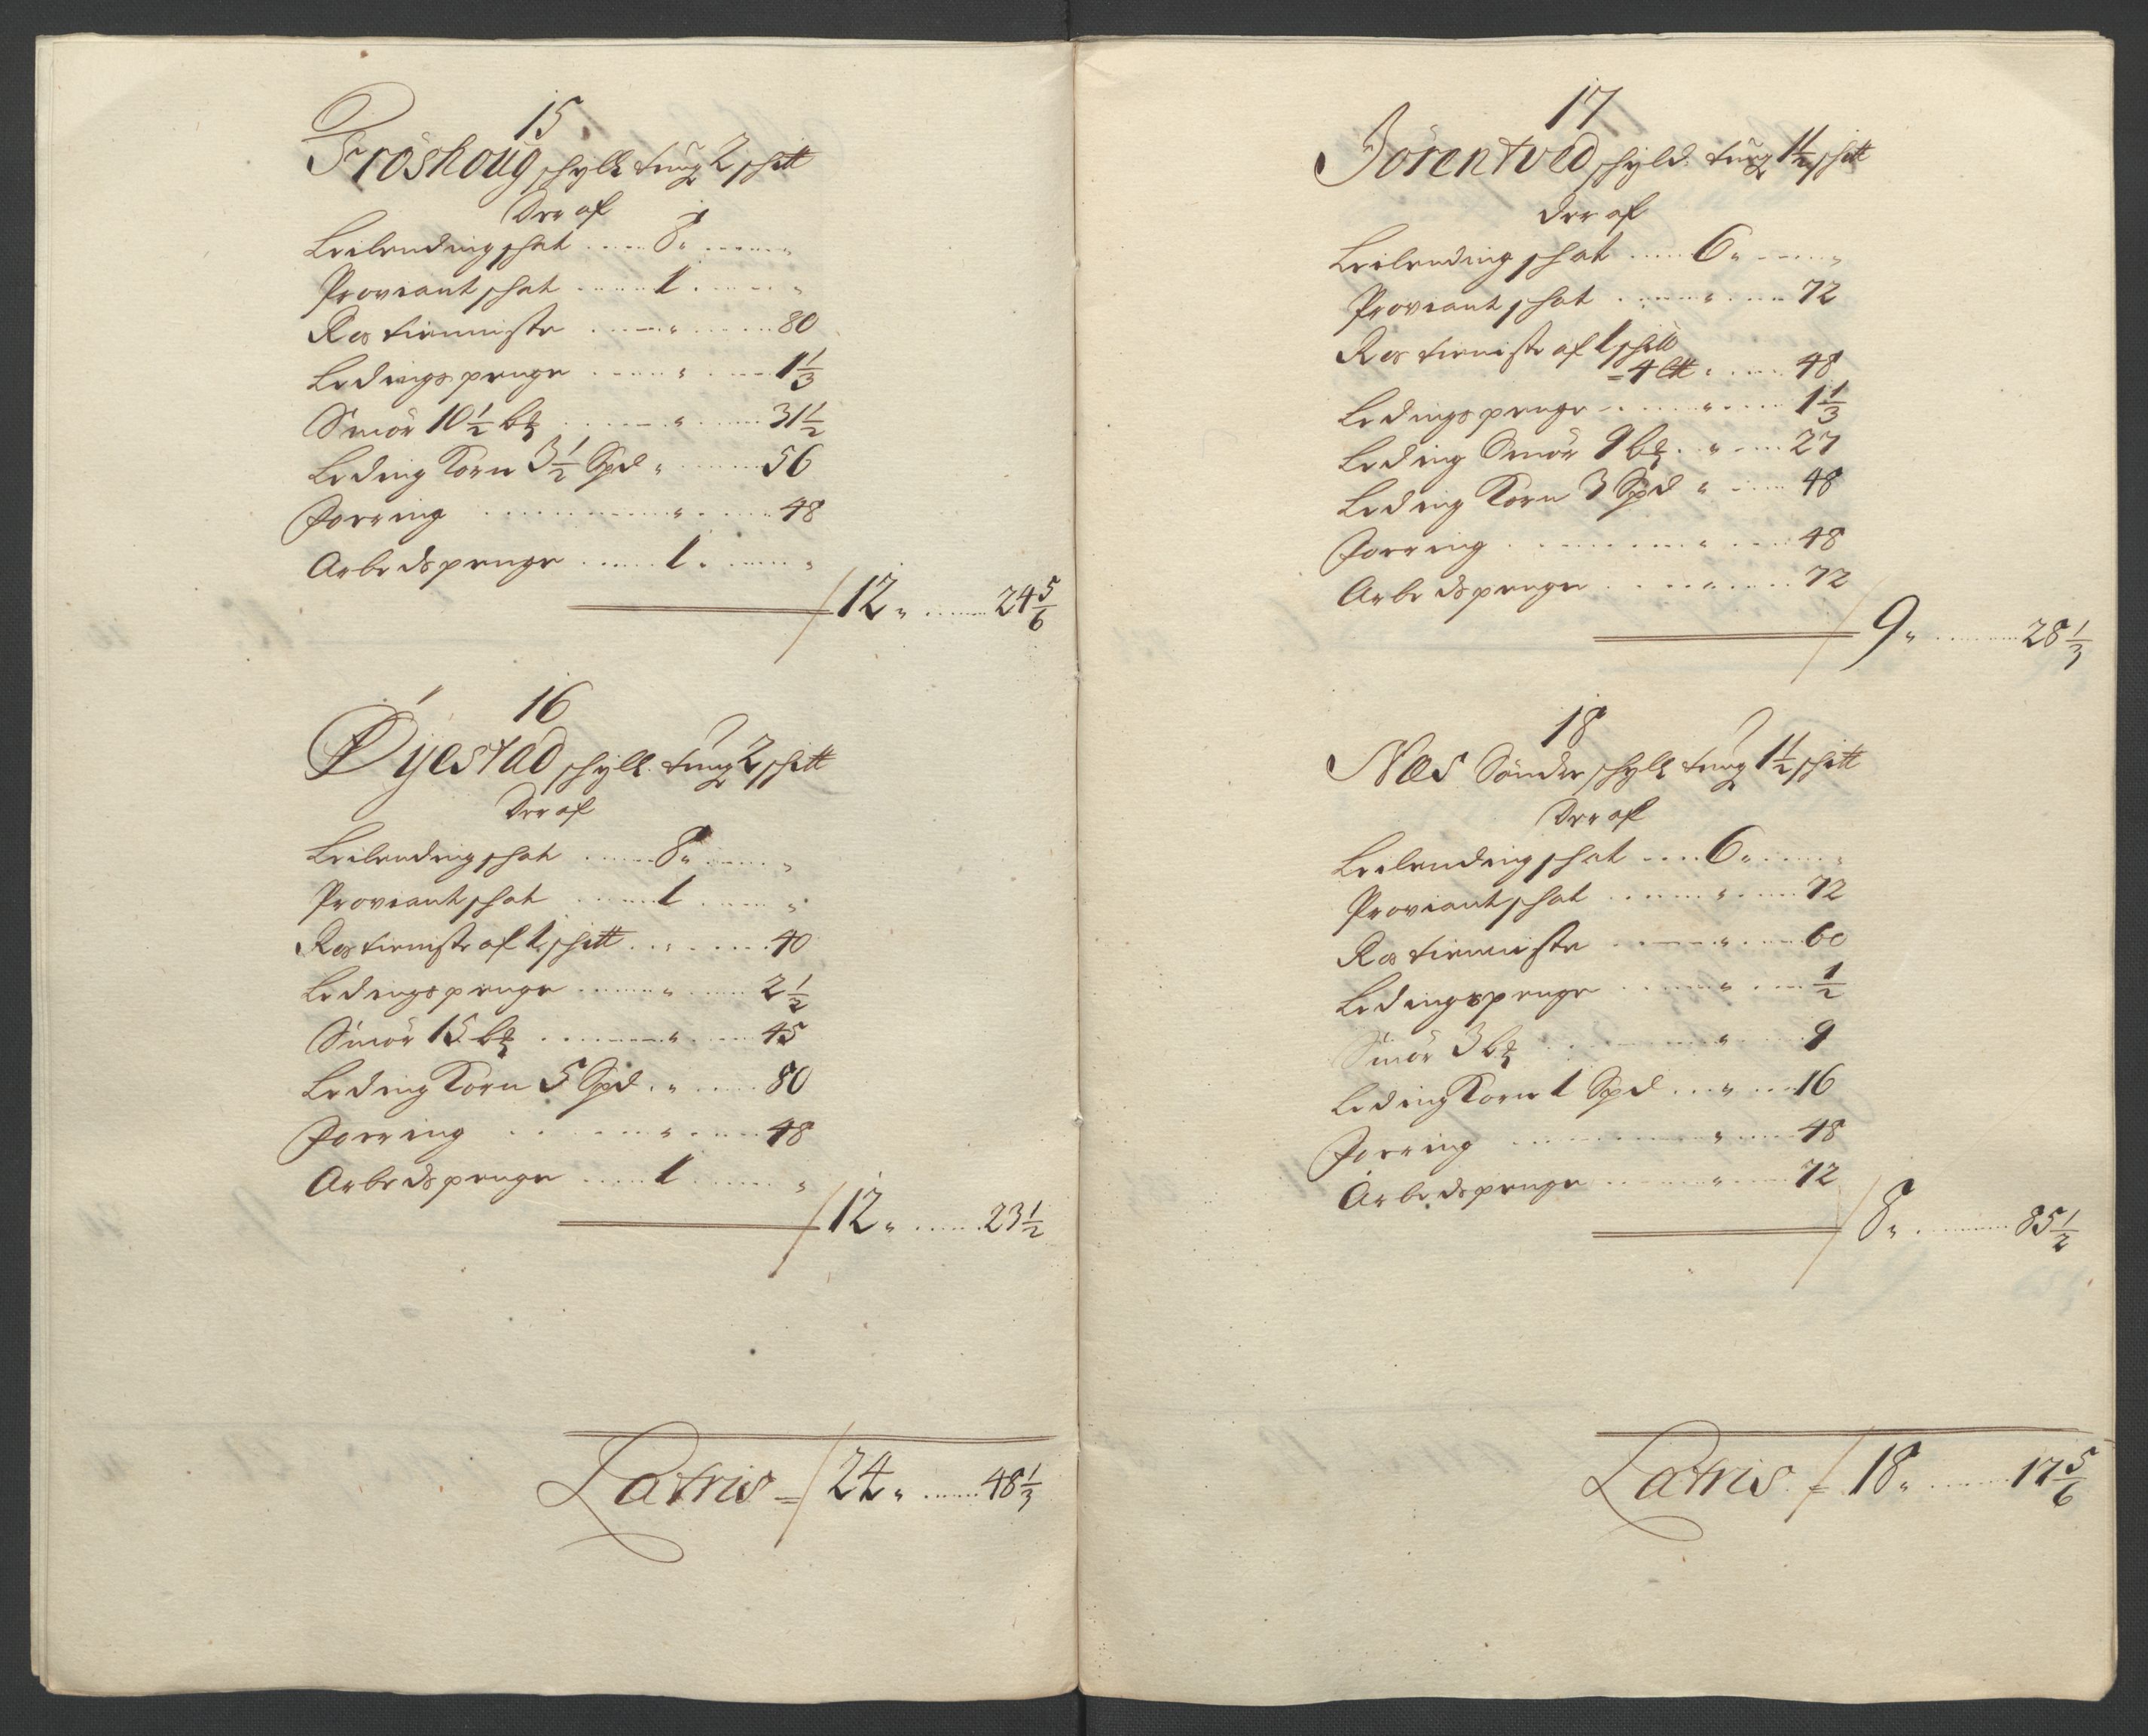 15
Fröshoug schyll tung 2 schitt
Der af
Leilending schat ..... 8 " ...... "
Proviant schat ..... 1 . ..... "
Ros tienniste ..... " ..... 80
Ledings penge ..... " ..... 1 1/3
Smör 10 1/2 b℔ ..... " ..... 31 1/2
Leding Korn 3 1/2 Spd " ..... 56
Forring ..... " ..... 48
Arbeds penge ..... 1 . ..... "
/ 12 " ..... 24 5/6
16
Øyestad schyll. tung 2 schitt
Der af
Leilending schat ..... 8 " ..... "
Proviant schat ..... 1 . ..... "
Ros tieniste af 1. schitt .. " ..... 40
Ledings penge ..... " ..... 2 1/2
Smör 15 b℔ ..... " ..... 45
Leding Korn 5 Spd . " ..... 80
Forring ..... " ..... 48
Arbeds penge ..... 1 ..... "
/ 12 " ..... 23 1/2
Latris = / 24 " ..... 48 1/3
17
Jörentved schyld. tung 1 1/2 schitt
Der af
Leilending schat ..... 6 " ..... "
Proviant schat ..... " ..... 72
Ros tieniste af 1 schitt
= 4 ltt " ..... 48
Ledings penge ..... " ..... 1 1/3
Leding Smör 9 b℔ .. " ..... 27
Leding Korn 3 Spd " ..... 48
Forring ..... " ..... 48
Arbeds penge ..... " ..... 72
/ 9 " ..... 28 1/3
18
Næs Sönder schyll tung 1 1/2 schitt
Der af
Leilending schat .... 6 " ..... "
Proviant schat ..... " ..... 72
Ros tienniste ..... " ..... 60
Ledings penge ..... " ..... 1/2
Smör 3 b℔ ..... " ..... 9
Leding Korn 1 Spd ... " ... 16
Forring ..... " ..... 48
Arbeds penge ..... " ..... 72
/ 8 " ..... 85 1/2
Latris. = / 18 " ..... 17 5/6